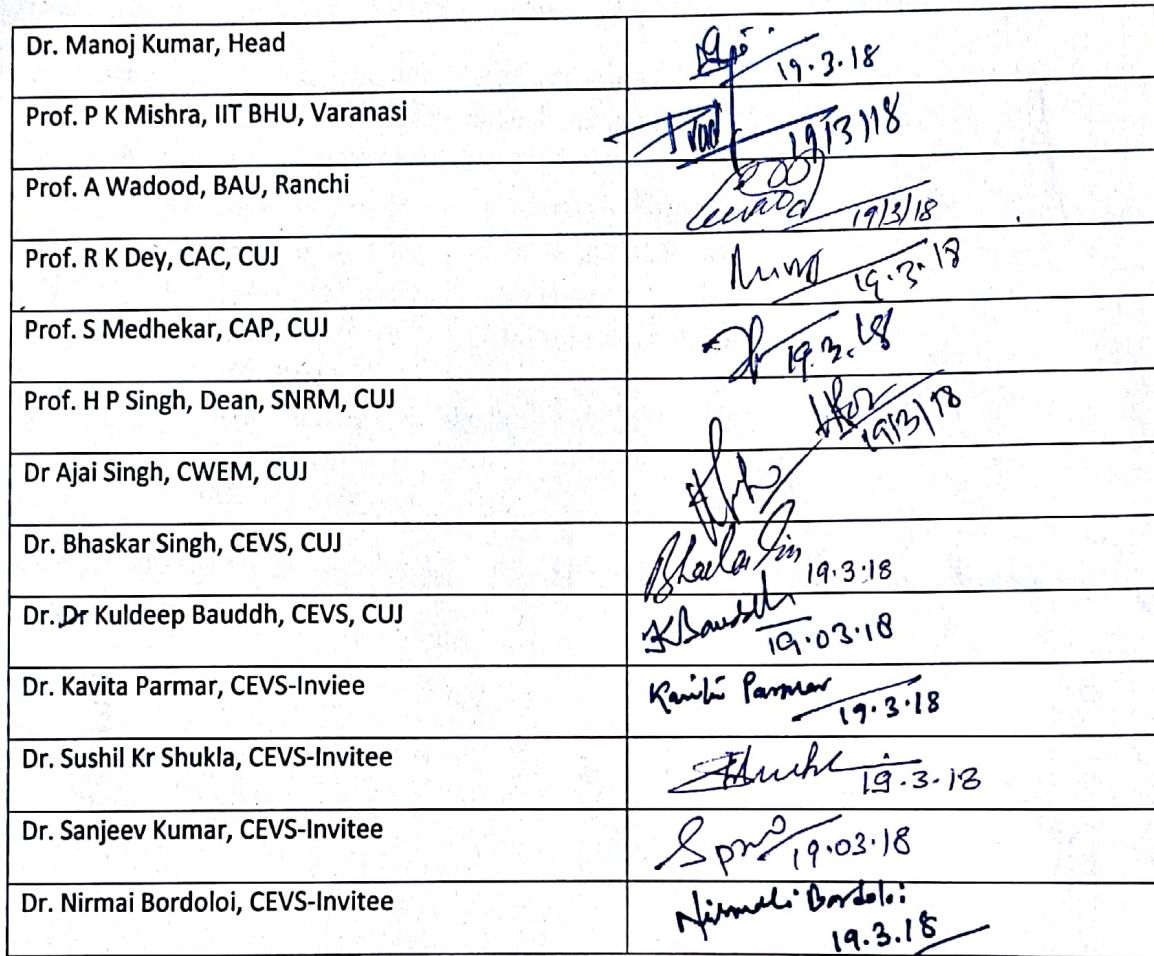 Dr. Manoj Kumar, Head
19.3.18
Prof. P K Mishra, IIT BHU, Varanasi
19/3/18
Prof. A Wadood, BAU, Ranchi
19/3/18
Prof. R K Dey, CAC, CUJ
19.3.18
Prof. S Medhekar, CAP, CUJ
19.3.18
Prof. H P Singh, Dean, SNRM, CUJ
19/3/18
Dr Ajai Singh, CWEM, CUJ
Dr. Bhaskar Singh, CEVS, CUJ
19.3.18
Dr. Dr Kuldeep Bauddh, CEVS, CUJ
KBauddh
19.03.18
Dr. Kavita Parmar, CEVS-Inviee
Kavita Parmar
19.3.18
Dr. Sushil Kr Shukla, CEVS-Invitee
19.3.18
Dr. Sanjeev Kumar, CEVS-Invitee
19.03.18
Dr. Nirmai Bordoloi, CEVS-Invitee
Nirmali Bordoloi
19.3.18